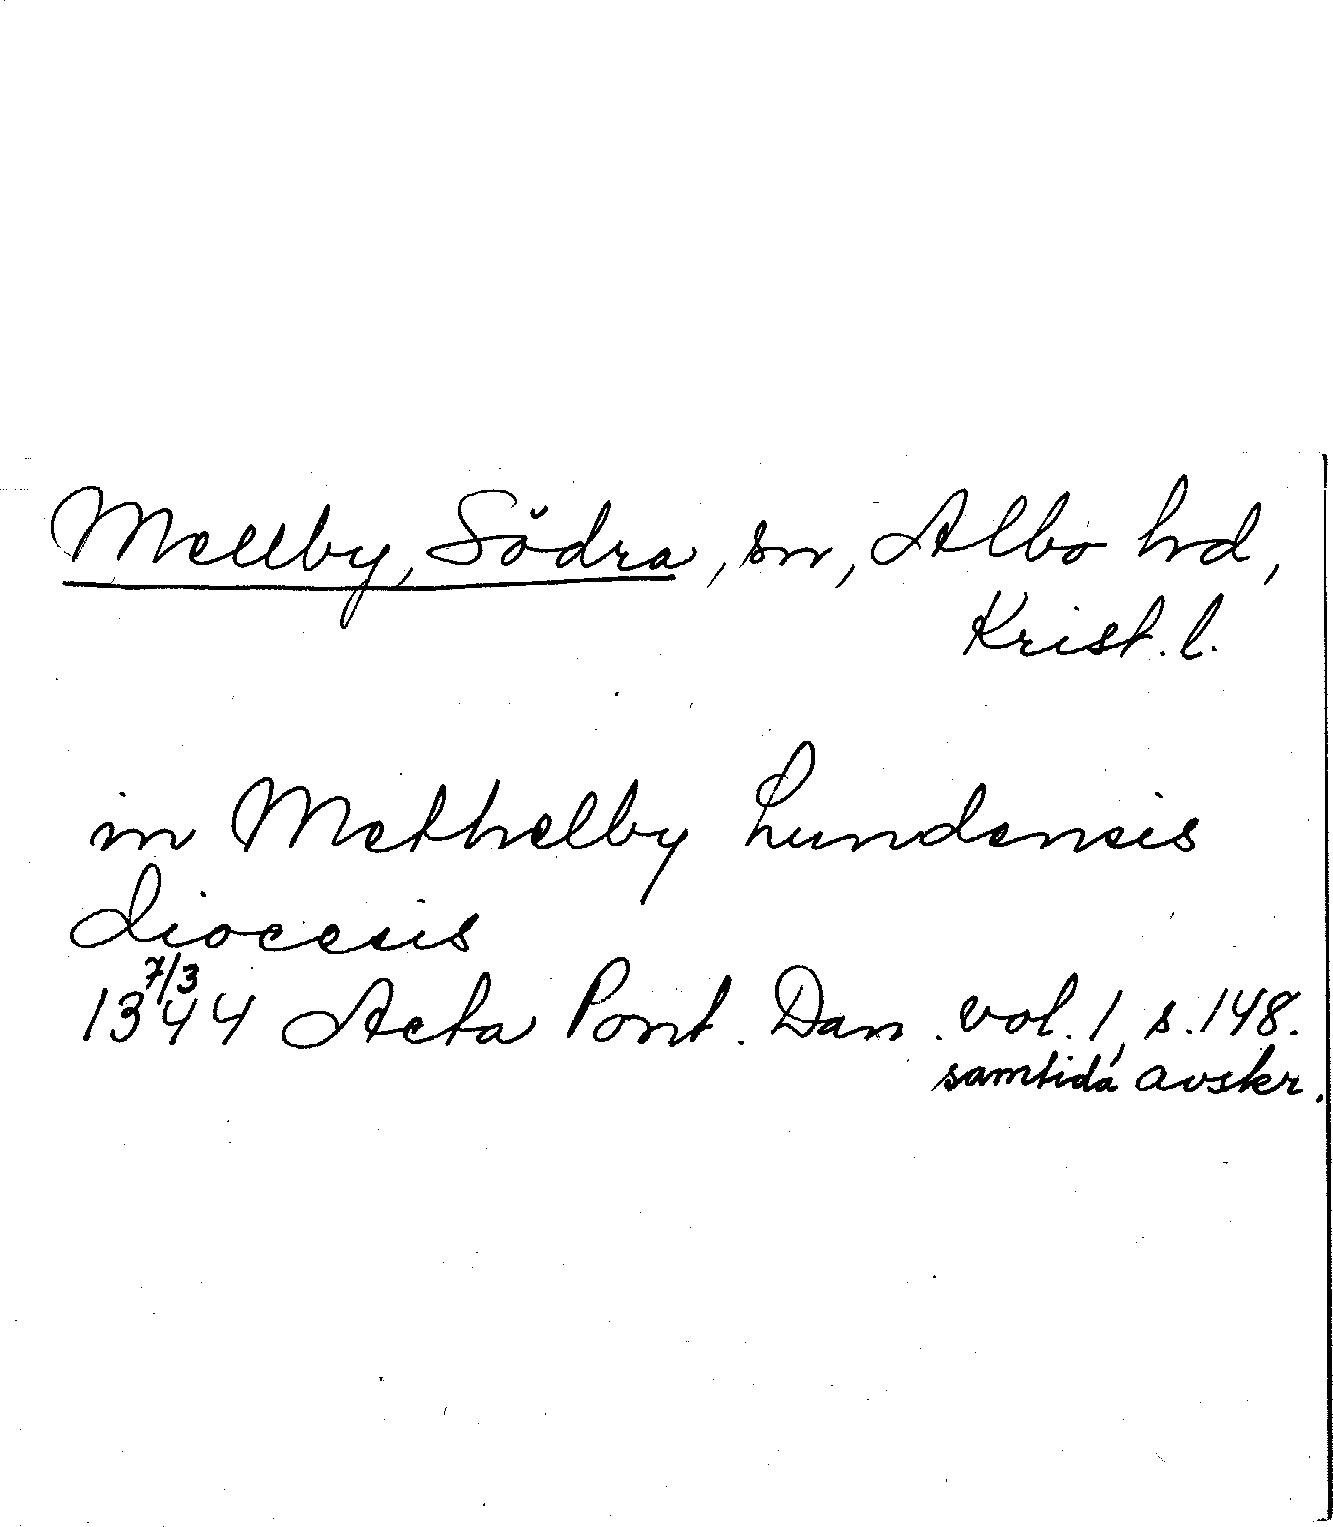 Mellby, Södra, sn, Albo hd,
Krist. l.
in Methelby Lundensis
diocesis
7/3
1344 Acta Pont. Dan. vol. 1, s. 148.
samtida avskr.